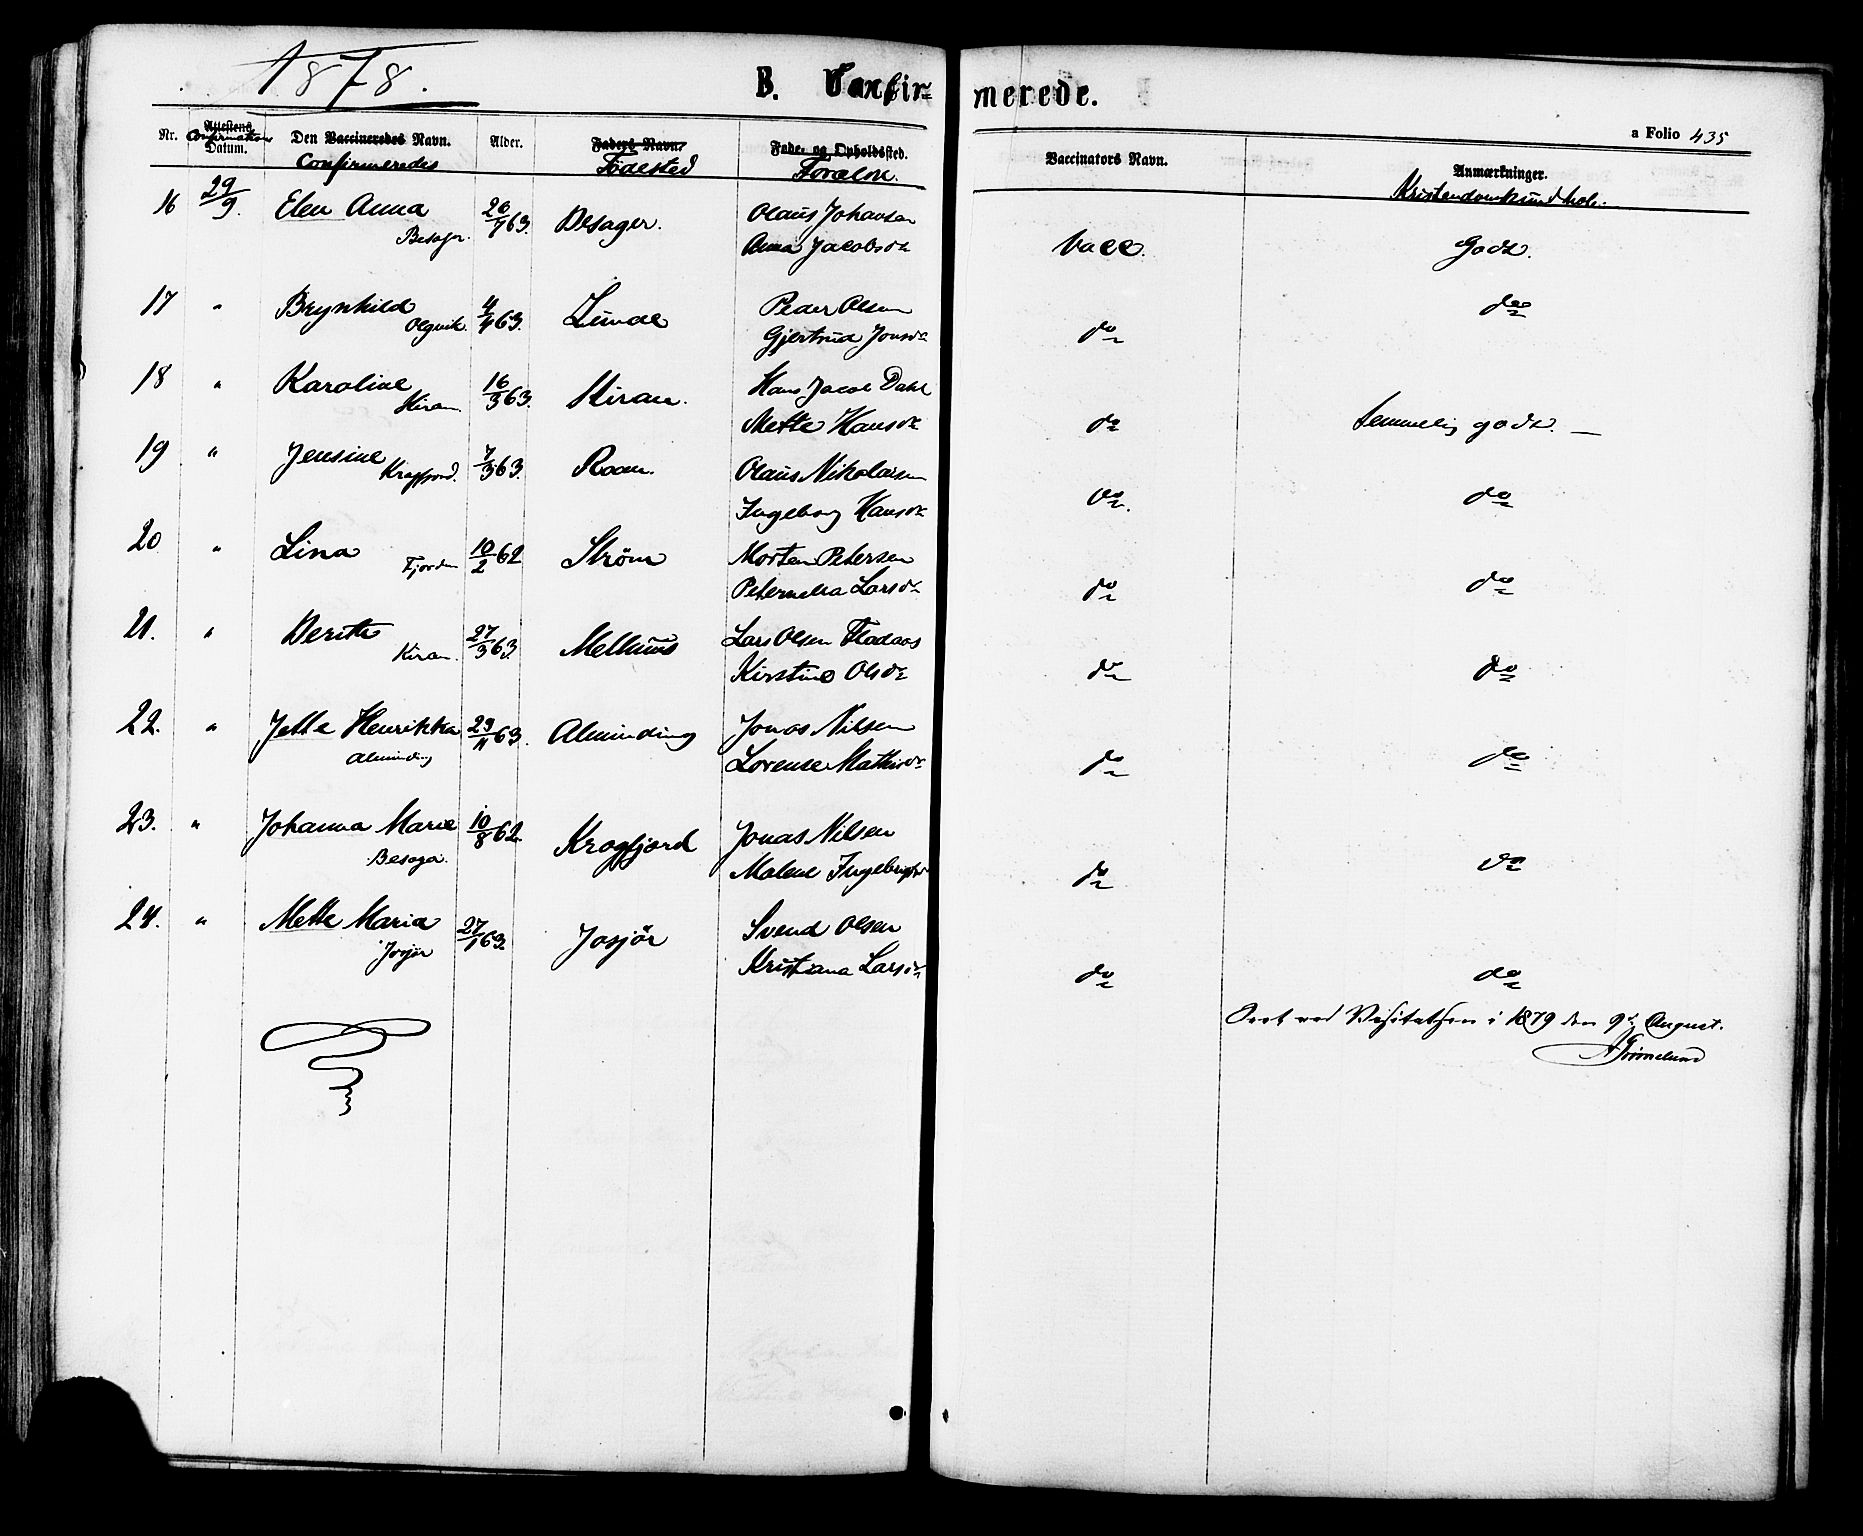 1878.
B. Confirmerede.
a Folio 435
Nr. Attestens Datum. Den Vaccineredes Navn. Alder. Faders Navn. Føde- og Opholdssted. Vaccinators Navn. Anmærkninger.
Confirmations Confirmeredes Fødested Forældre. Kristendomskundskab.
16 29/9. Elen Anna 26/7 63. Besager. Olaus Johansen
Besager. Anna Jacobsdr Vacc. Godt.
17 " Brynhild 4/4 63. Lunde Peder Olsen do
Olsvik. Gjertrud Jonsdr do
18 " Karoline 16/3 63. Kiran. Hans Jacob Dahl
Kiran. Mette Hansdr do temmelig godt. —
19 " Jensine 7/3 63. Roan. Olaus Nikolaisen
Krogfjord. Ingeborg Hansdr do. do
20 " Lina 10/2 62 Strøm Morten Petersen
Fjorden Peternella Larsdr do do
21. " Berith 27/3 63. Melhuus Lars Olsen Fladaas
Kiran. Kirstine Olsdr do do
22. " Jette Henrikka 23/11 63. Alminding Jonas Nilsen
Alminding Lorense Mathisdr do do
23. " Johanna Marie 10/8 62. Krogfjord Jonas Nilsen
Besager. Malene Ingebrigtsdr do do
24. " Mette Maria 27/1 63. Josjør Svend Olsen
Josjør Kristiana Larsdr do do
Seet ved Visitatsen i 1879 den 9de August.
Grimelund